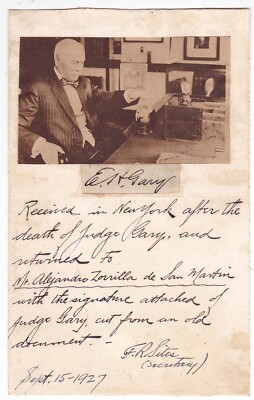 E. H. Gary
Received in New York after the
death of Judge Gary, and
returned to
Mr. Alejandro Zorrilla de San Martin
with the signature attached of
Judge Gary, cut from an old
document. -
F. R. Sites
(Secretary)
Sept. 15-1927